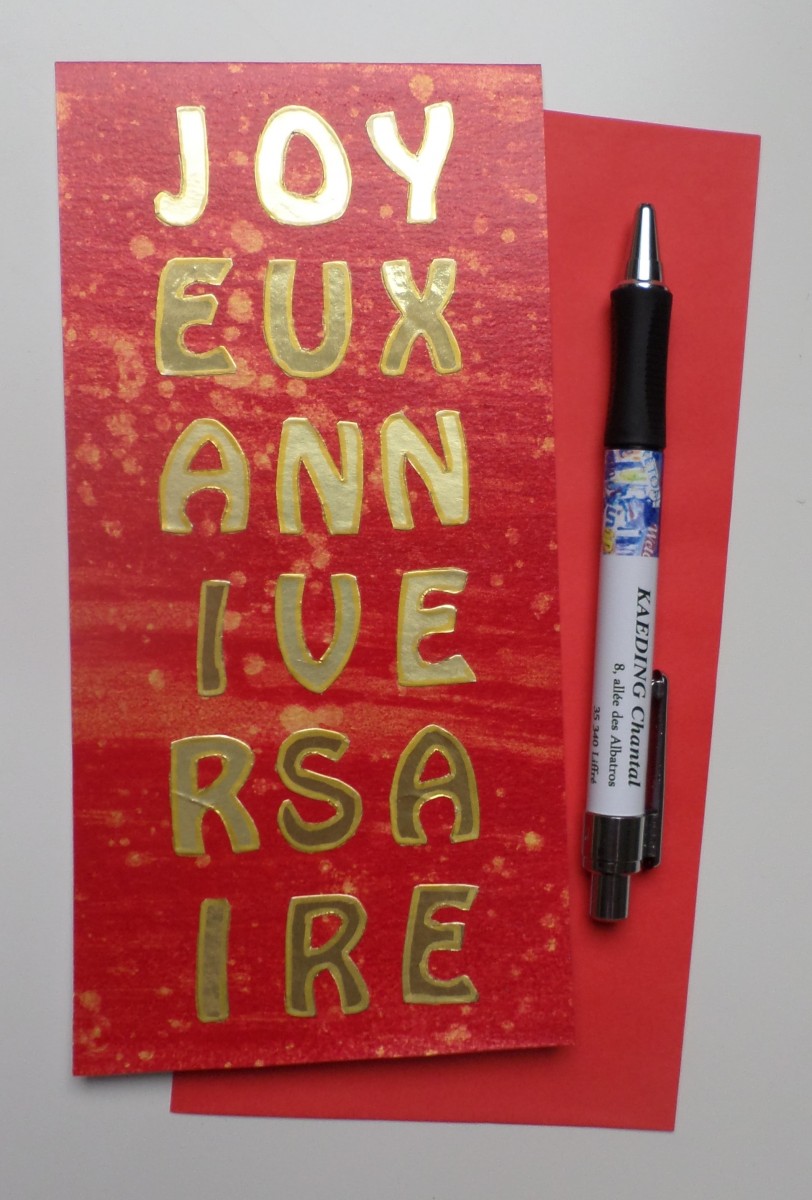 JOY
EUX
ANN
IVE
RSA
IRE
KAEDING Chantal
8, allée des Albatros
35 340 Liffré